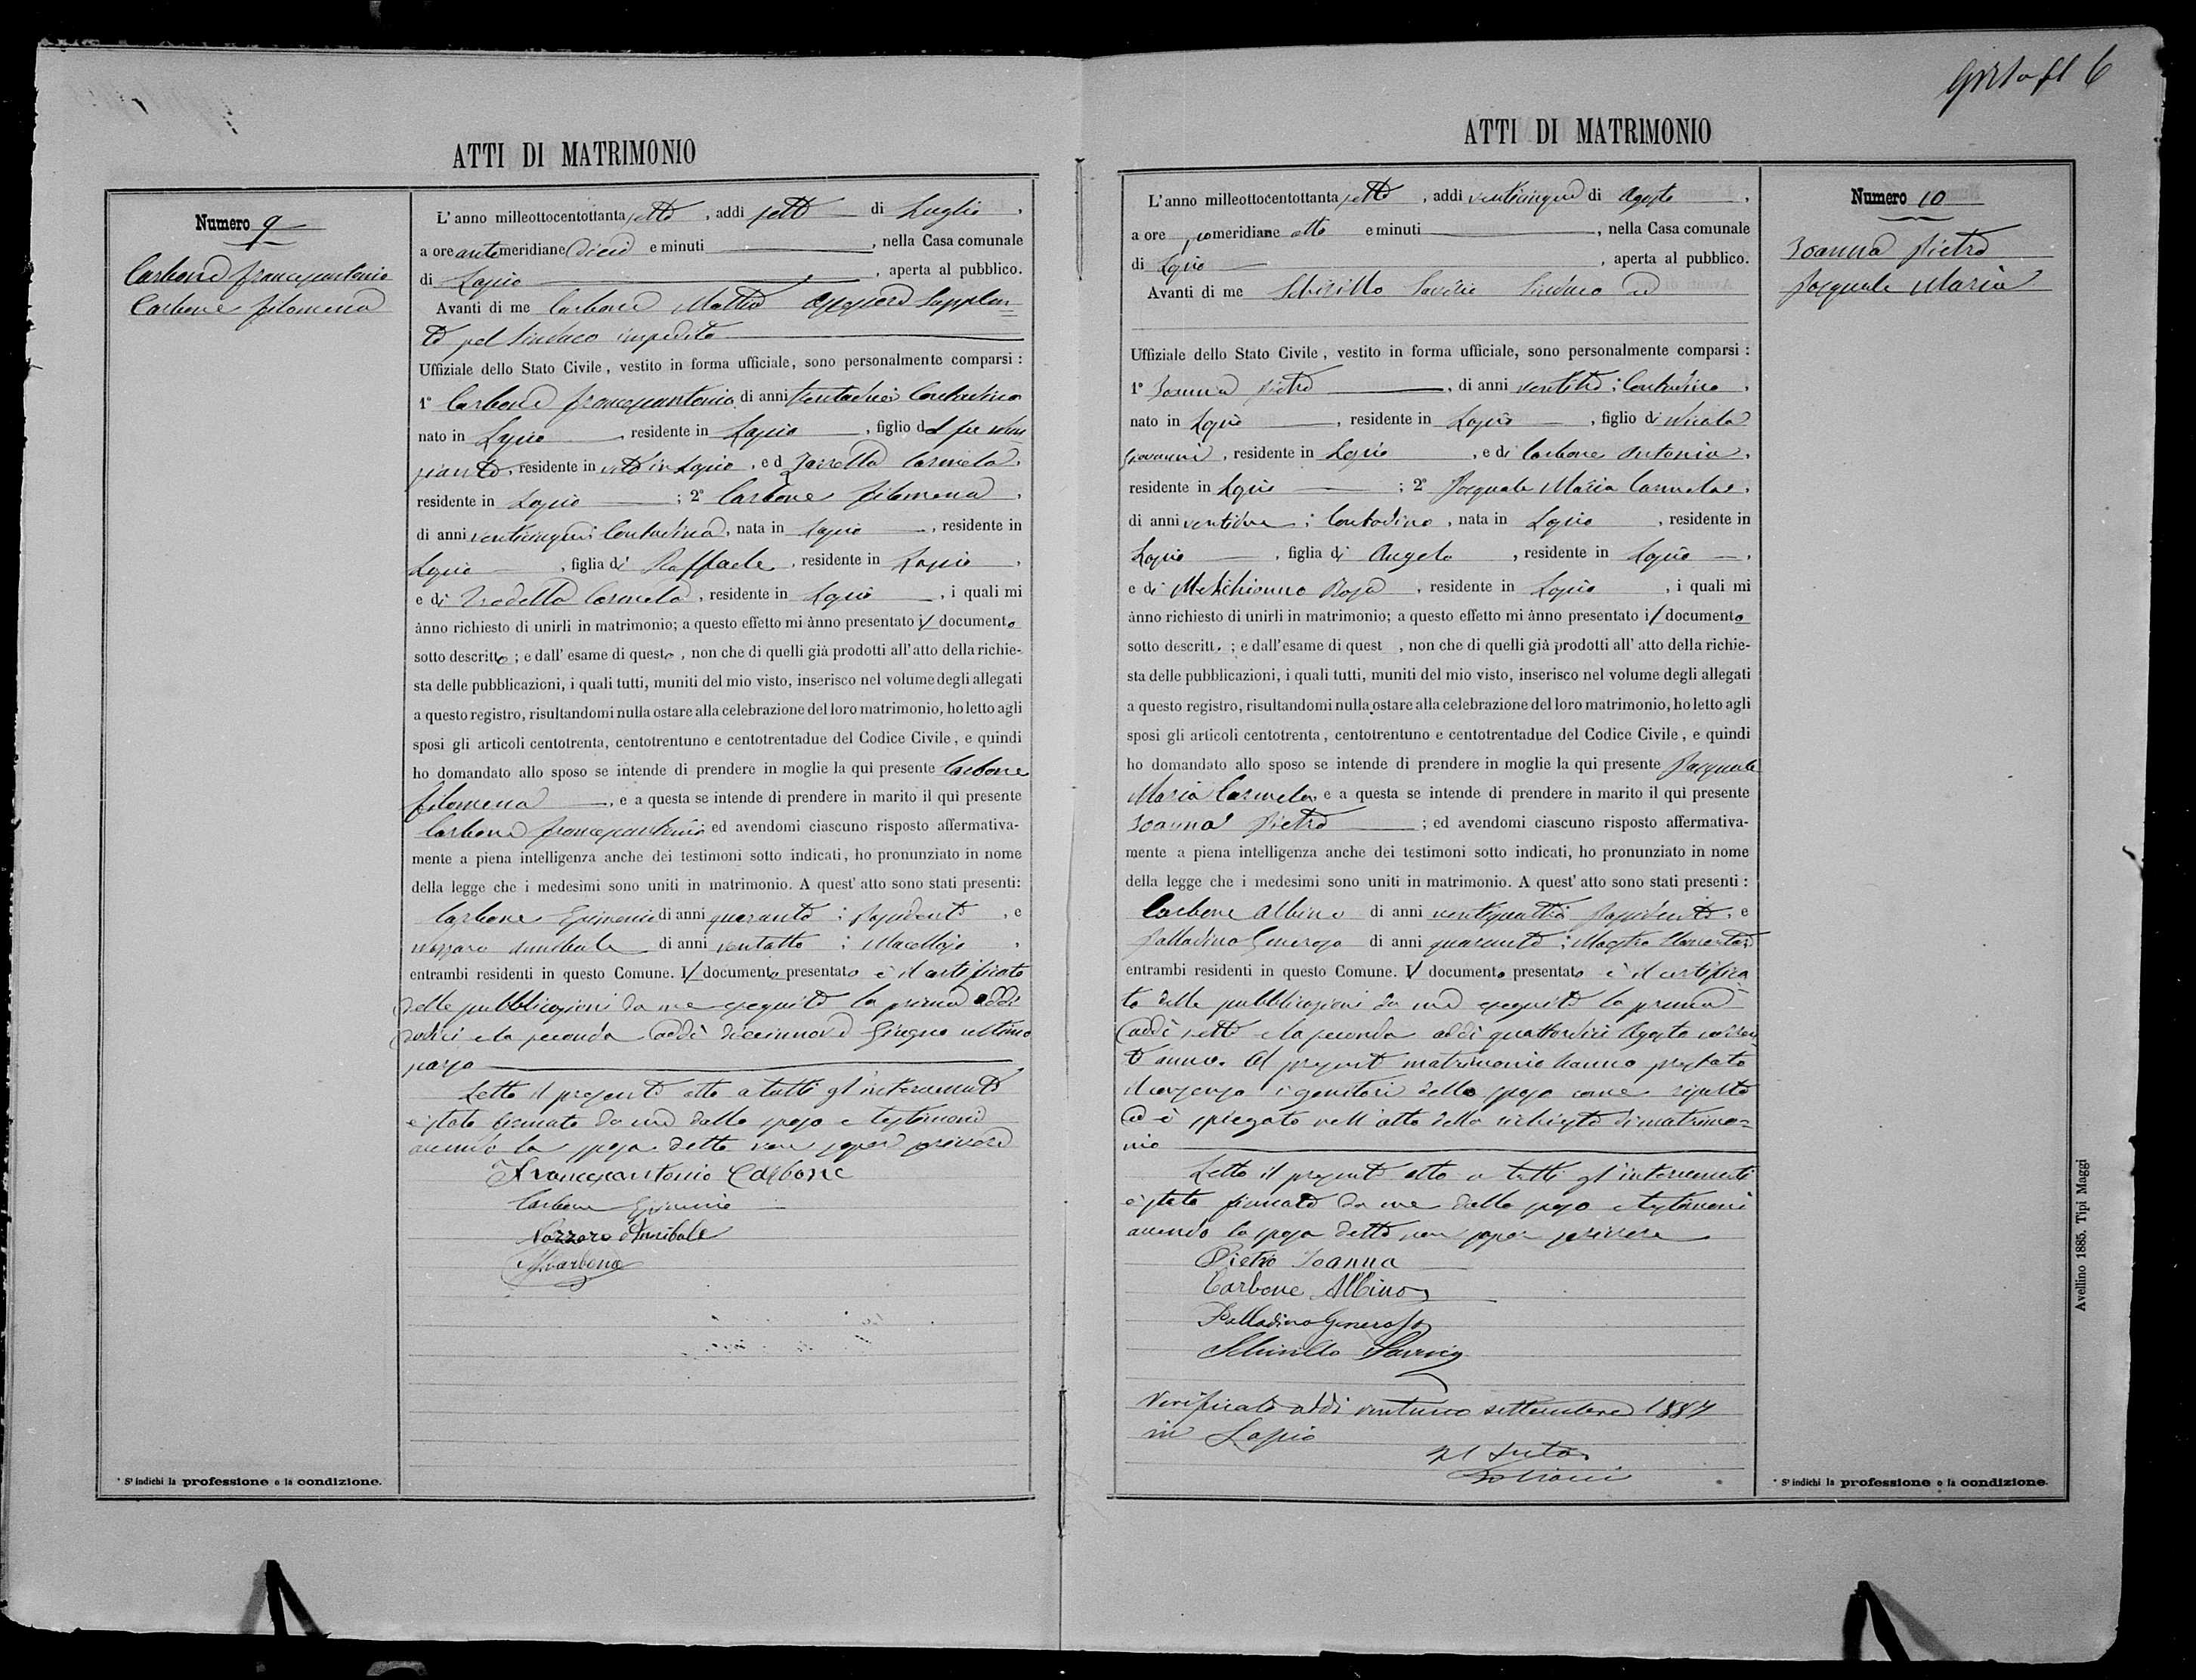 6
ATTI DI MATRIMONIO
Numero 9
Carbone Francescantonio
Carbone Filomena
L'anno milleottocentottanta sette, addì sette di Luglio,
a ore antemeridiane dieci e minuti, nella Casa comunale
di Lapio, aperta al pubblico.
Avanti di me Carbone Mattia Assessore Supplen=
te pel Sindaco impedito
Uffiziale dello Stato Civile, vestito in forma ufficiale, sono personalmente comparsi:
1° Carbone Francescantonio, di anni trentadue; Contadino
nato in Lapio, residente in Lapio, figlio del fu
, residente in vita in Lapio, e di Carmela,
residente in Lapio; 2° Carbone Filomena,
di anni venticinque; Contadina, nata in Lapio, residente in
Lapio, figlia di Raffaele, residente in Lapio,
e di Carmela, residente in Lapio, i quali mi
ànno richiesto di unirli in matrimonio; a questo effetto mi ànno presentato il documento
sotto descritto; e dall'esame di questo, non che di quelli già prodotti all'atto della richie-
sta delle pubblicazioni, i quali tutti, muniti del mio visto, inserisco nel volume degli allegati
a questo registro, risultandomi nulla ostare alla celebrazione del loro matrimonio, ho letto agli
sposi gli articoli centotrenta, centotrentuno e centotrentadue del Codice Civile, e quindi
ho domandato allo sposo se intende di prendere in moglie la qui presente Carbone
Filomena, e a questa se intende di prendere in marito il qui presente
Carbone Francescantonio; ed avendomi ciascuno risposto affermativa-
mente a piena intelligenza anche dei testimoni sotto indicati, ho pronunziato in nome
della legge che i medesimi sono uniti in matrimonio. A quest'atto sono stati presenti:
Carbone Erminio di anni quaranta; Possidente, e
Nazzaro Annibale di anni ventotto; Macellajo,
entrambi residenti in questo Comune. Il documento presentato è il certificato
delle pubblicazioni da me eseguite la prima addì
dodici e la seconda addì diciannove Giugno ultimo
scorso
Letto il presente atto a tutti gl'intervenuti
è stato firmato da me dallo sposo e testimoni
avendo la sposa detto non saper scrivere
Francescantonio Carbone
Carbone Erminio
Nazzaro Annibale
M. Carbone
* Si indichi la professione o la condizione.
ATTI DI MATRIMONIO
Numero 10
Ioanna Pietro
Pasquale Maria
L'anno milleottocentottanta sette, addì venticinque di Agosto,
a ore pomeridiane otto e minuti, nella Casa comunale
di Lapio, aperta al pubblico.
Avanti di me Schirillo Saverio Sindaco ed
Uffiziale dello Stato Civile, vestito in forma ufficiale, sono personalmente comparsi:
1° Ioanna Pietro, di anni ventitre; Contadino,
nato in Lapio, residente in Lapio, figlio di Nicola
Giovanni, residente in Lapio, e di Carbone Antonia,
residente in Lapio; 2° Pasquale Maria Carmela,
di anni ventidue; Contadina, nata in Lapio, residente in
Lapio, figlia di Angelo, residente in Lapio,
e di Melchionno Rosa, residente in Lapio, i quali mi
ànno richiesto di unirli in matrimonio; a questo effetto mi ànno presentato il documento
sotto descritt.; e dall'esame di quest , non che di quelli già prodotti all'atto della richie-
sta delle pubblicazioni, i quali tutti, muniti del mio visto, inserisco nel volume degli allegati
a questo registro, risultandomi nulla ostare alla celebrazione del loro matrimonio, ho letto agli
sposi gli articoli centotrenta, centotrentuno e centotrentadue del Codice Civile, e quindi
ho domandato allo sposo se intende di prendere in moglie la qui presente Pasquale
Maria Carmela, e a questa se intende di prendere in marito il qui presente
Ioanna Pietro; ed avendomi ciascuno risposto affermativa-
mente a piena intelligenza anche dei testimoni sotto indicati, ho pronunziato in nome
della legge che i medesimi sono uniti in matrimonio. A quest'atto sono stati presenti:
Carbone Albino di anni ventiquattro Possidente, e
Palladino Generoso di anni quaranta; Maestro Elementare
entrambi residenti in questo Comune. Il documento presentato è il certifica
to delle pubblicazioni da me eseguite la prima
addì sette e la seconda addì quattordici Agosto corren
te anno. Al presente matrimonio hanno prestato
il consenso i genitori dello sposo come risulta
ed è spiegato nell'atto della richiesta di matrimo=
nio
Letto il presente atto a tutti gl'intervenuti
è stato firmato da me dallo sposo e testimoni
avendo la sposa detto non saper scrivere
Pietro Ioanna
Carbone Albino
Palladino Generoso
Schirillo Saverio
Verificato addì ventuno settembre 1887
in Lapio
* Si indichi la professione o la condizione.
Avellino 1885. Tipi Maggi